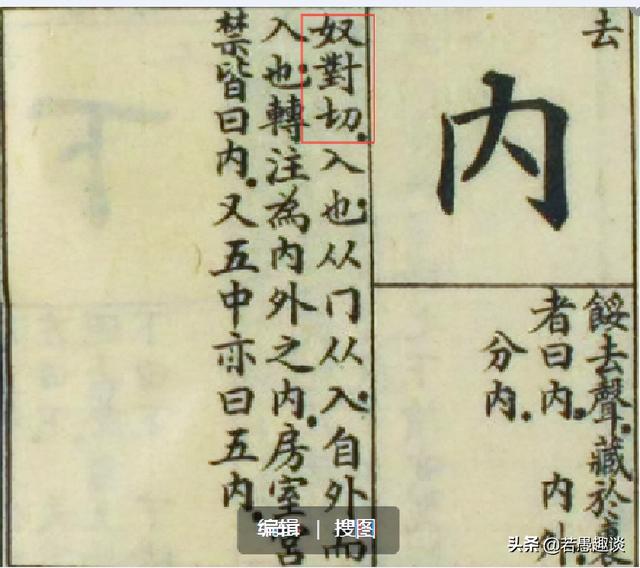 去
内
餒去聲。藏於裏
者曰内。内外。
分内。
奴對切。入也。从门从入。自外而
入也。轉注為内外之内。房室宮
禁皆曰内。又五中亦曰五内。
编辑 | 搜图
头条 @若愚趣谈